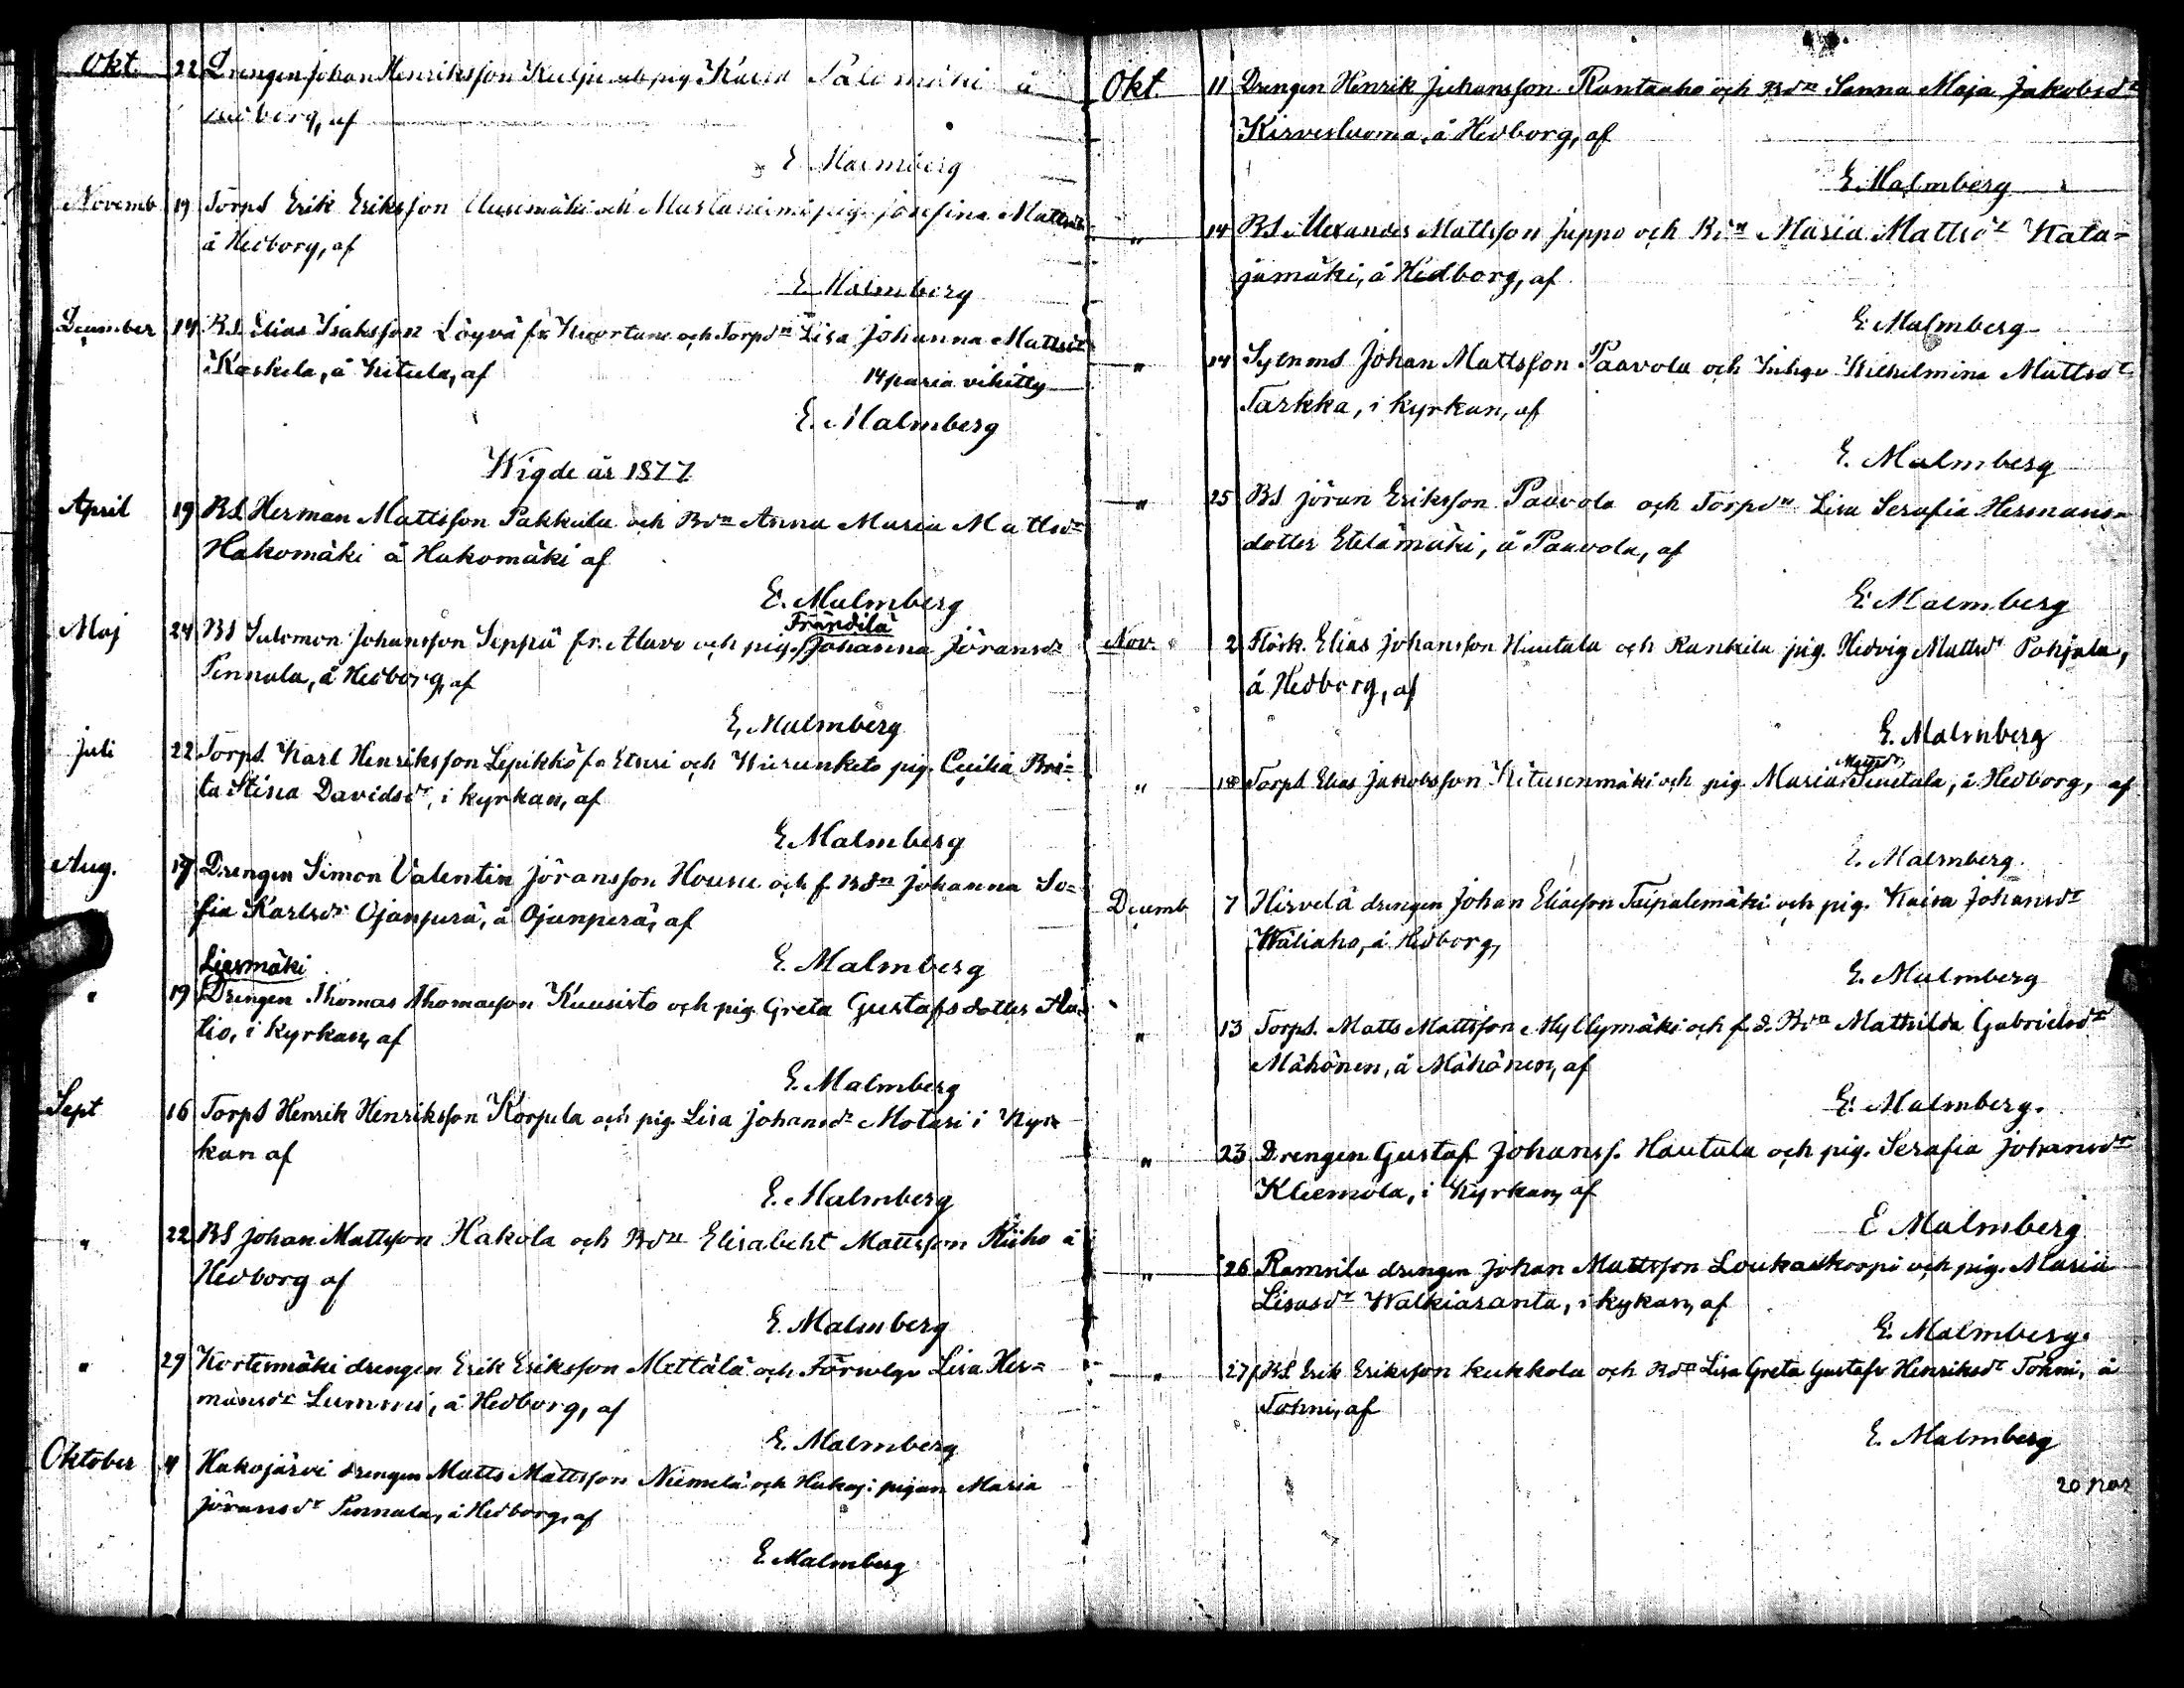 Okt. 22 Drengen Johan Henriksson pig Kaisa Palomäki å
Hedborg, af
E Malmberg
Novemb 19 Torps Erik Eriksson Uusimäki och pig. Josefina Mattsdr
å Hedborg, af
E. Malmberg
December 14 B.S. Elias Isaksson Löyvä fr. Kuortane och Torpdn Lisa Johanna Mattsdr
Koskela, å Kitula, af
14 paria vihitty
E. Malmberg
Wigde år 1877
April 19 B.S. Herman Mattsson Pakkala och Bdn Anna Maria Mattsdr
Hakomäki å Hakomäki af
E. Malmberg
Frändilä
Maj 24 BS Salomon Johansson Seppä fr. Alavo och pig. Johanna Jöransdr
Pennala, å Hedborg, af
E. Malmberg
Juli 22 Torps. Karl Henriksson Lepikkö fr Etseri och pig. Cecilia Bri=
ta Stina Davidsdr, i kyrkan, af
E. Malmberg
Aug. 17 Drengen Simon Valentin Jöransson och f. Bdn Johanna So=
fia Karlsdr Ojanperä, å Ojanperä, af
E. Malmberg
Liesmäki
" 19 Drengen Thomas Thomasson Kuusisto och pig. Greta Gustafsdotter Ala=
tio, i Kyrkan, af
E. Malmberg
Sept 16 Torps Henrik Henriksson Korpela och pig. Lisa Johansdr i Kyr=
kan af
E. Malmberg
" 22 BS Johan Mattsson Hakola och Bdn Elisabeht Mattsson å
Hedborg af
E. Malmberg
" 29 Kortesmäki drengen Erik Eriksson Mettälä och Lisa Her=
mansdr Lummi, å Hedborg, af
E. Malmberg
Oktober 11 Hakojärvi drengen Matts Mattsson Niemelä och Hakoj: pigan Maria
Jöransdr Pennala, å Hedborg, af
E Malmberg
Okt. 11 Drengen Henrik Johansson Rantaaho och Bdn Sanna Maja Jakobsdr
Kirvesluoma, å Hedborg, af
E. Malmberg
" 14 BS. Alexander Mattsson Juppo och Bdn Maria Mattsdr Kata=
jamäki, å Hedborg, af
E. Malmberg
" 14 Sytnms Johan Mattsson Paavola och Inhgv Wilhelmina Mattsdr
Tarkka, i kyrkan, af
E. Malmberg
" 25 BS Jöran Eriksson Paavola och Torpdn Lisa Serafia Hermans=
dotter Etelämäki, å Paavola, af
E. Malmberg
Nov. 2 Elias Johansson Hautala och pig. Hedvig Mattsdr Pohjala,
å Hedborg, af
E. Malmberg
Mattsdr
" 18 Torps Elias Jakobsson Kitusenmäki och pig. Maria å Hedborg, af
E. Malmberg.
Decemb 7 Hirvelä drengen Johan Eliasson Taipalemäki och pig. Kaisa Johansdr
Wäliaho, å Hedborg,
E. Malmberg
" 13 Torps. Matts Mattsson Myllymäki och f. d. Bdn Mathilda Gabrielsdr
Mähönen, å Mähönen, af
E. Malmberg.
" 23 Drengen Gustaf Johanss. Hautala och pig. Serafia Johansdr
Kleemola, i Kyrkan, af
E Malmberg
" 26 Ramsila drengen Johan Mattsson Loukaskorpi och pig. Maria
Lisasdr Walkiaranta, i kykan, af
E. Malmberg.
" 27 f BS. Erik Eriksson Kukkola och Bdn Lisa Greta Gustafs Henriksdr Tohni, å
Tohni, af
E. Malmberg
20 par